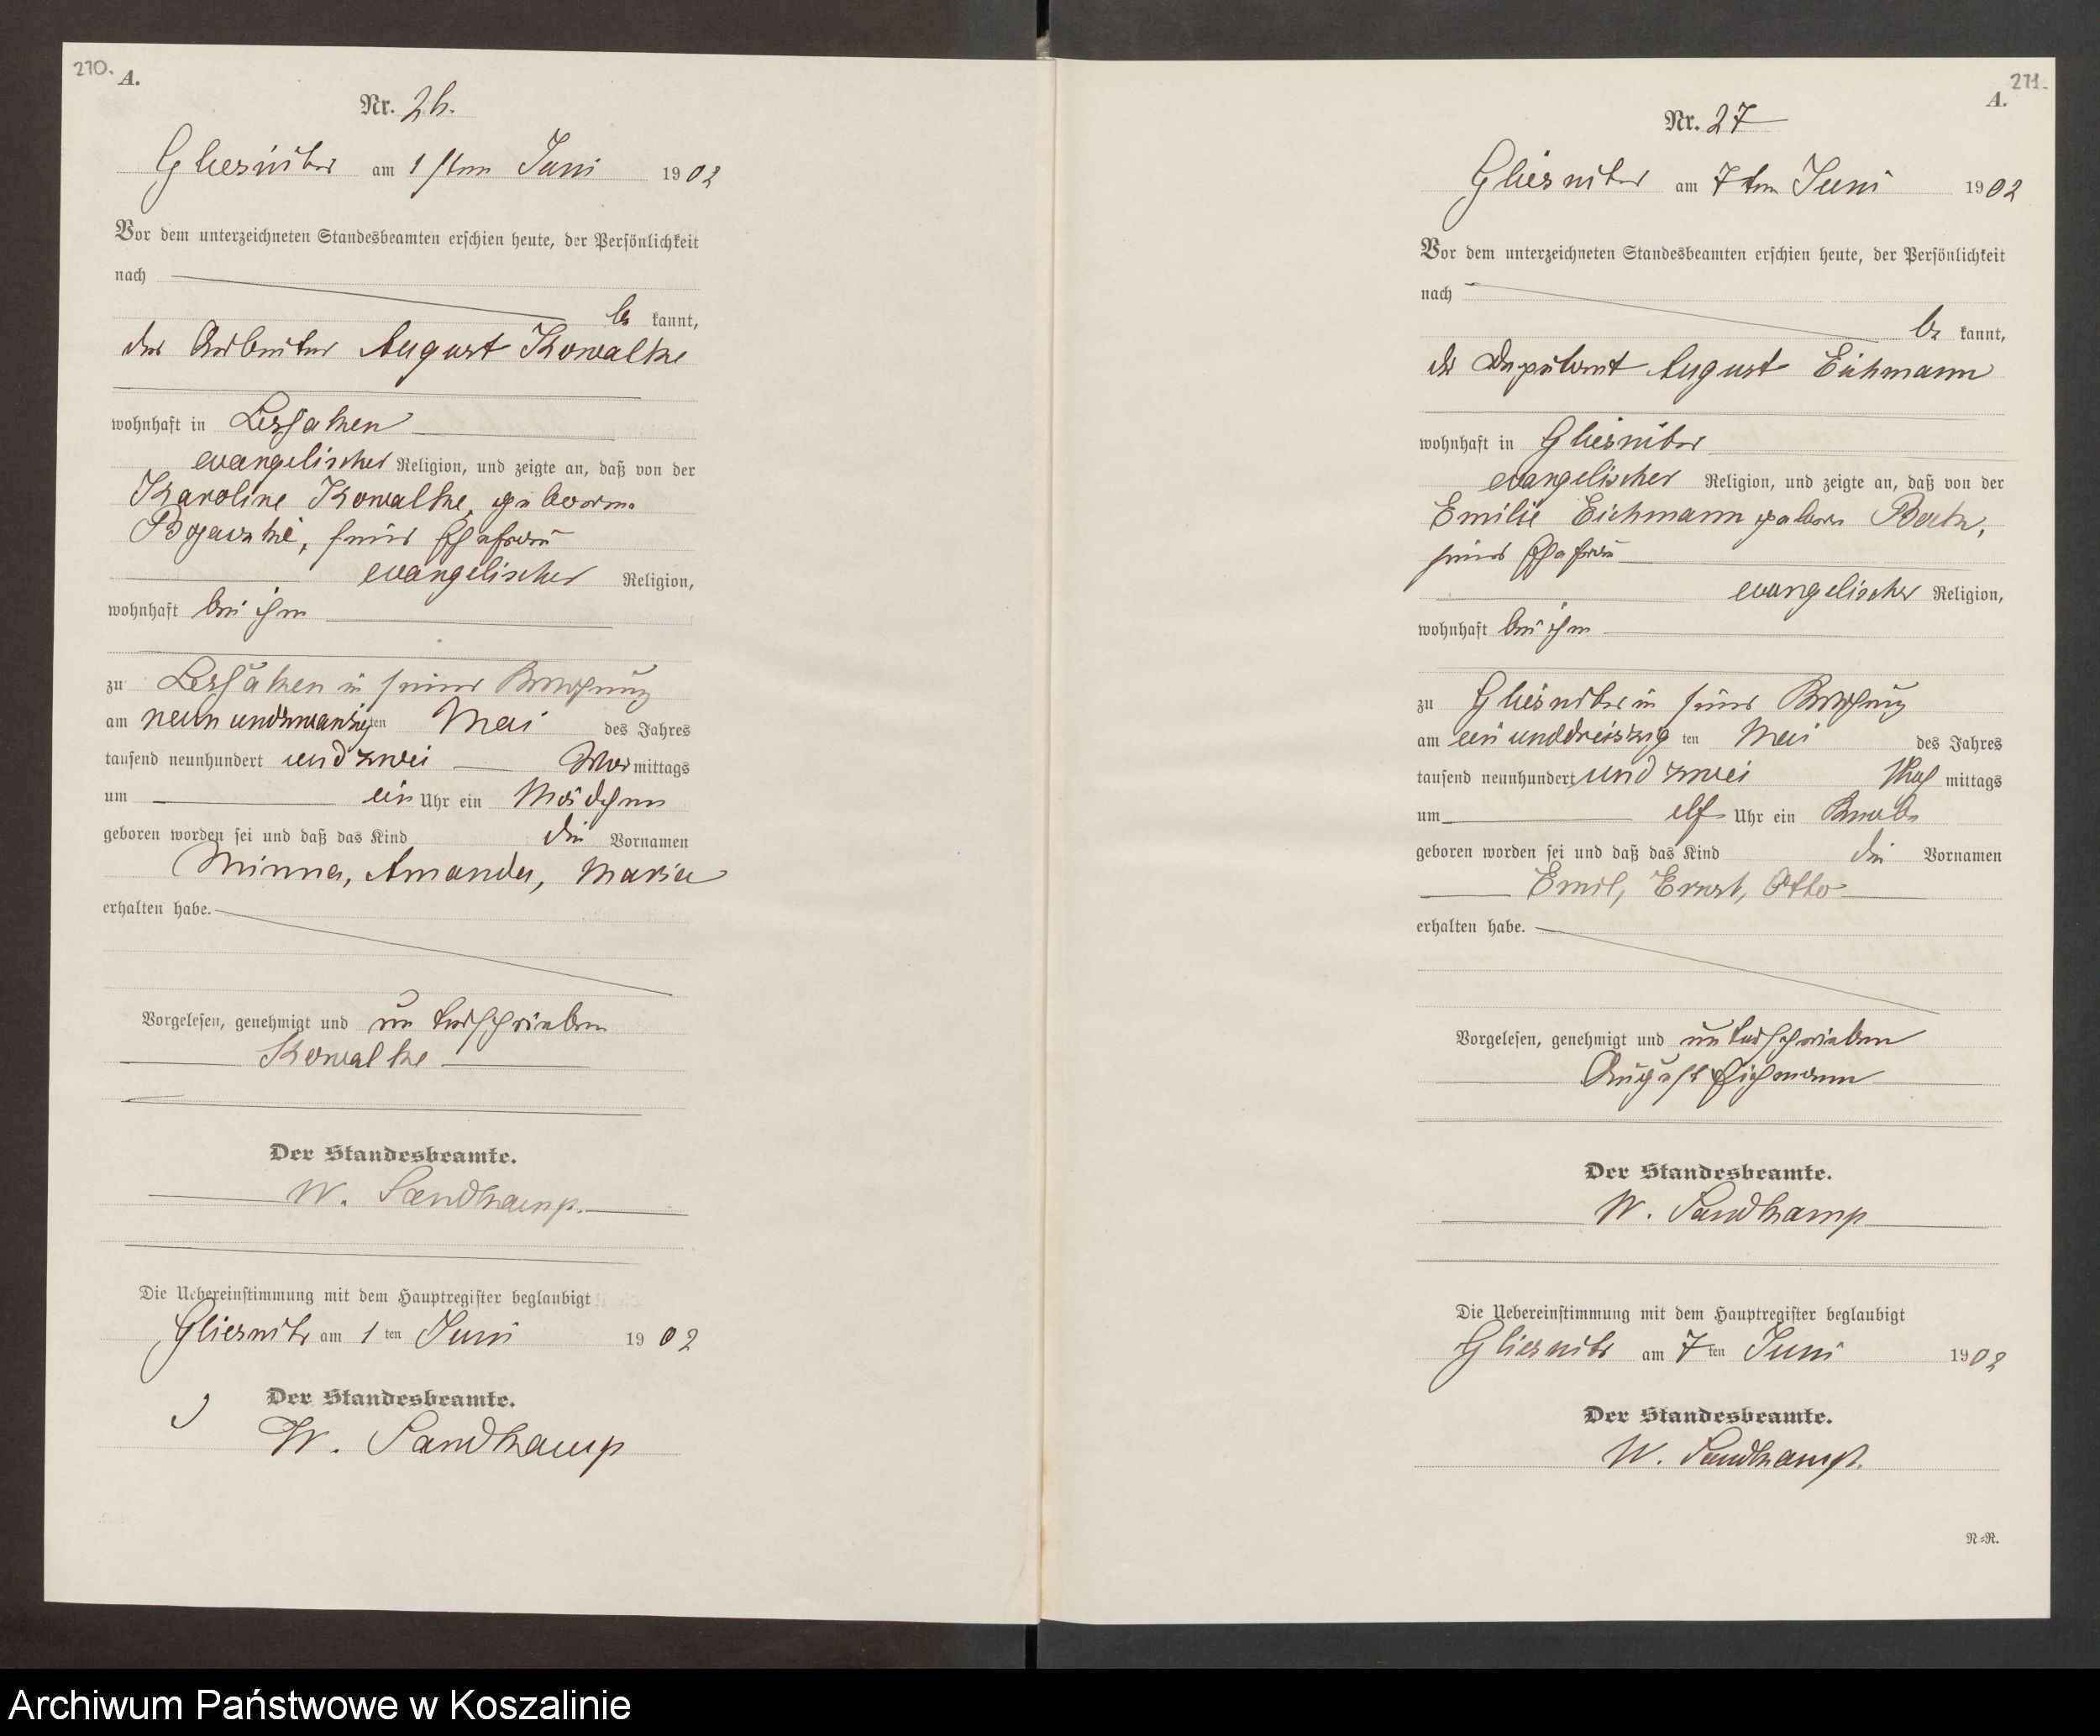 210. A.
Nr. 26.
Gliesnitz am 1sten Juni 1902
Vor dem unterzeichneten Standesbeamten erschien heute, der Persönlichkeit
nach
be kannt,
der Arbeiter August Kowalke
wohnhaft in Lessaken
evangelischer Religion, und zeigte an, daß von der
Karoline Kowalke, geborne
seine Ehefrau
evangelischer Religion,
wohnhaft bei ihm
zu Lessaken in seiner Wohnung
am neun undzwanzigten Mai des Jahres
tausend neunhundert und zwei Vormittags
um ein Uhr ein Mädchen
geboren worden sei und daß das Kind die Vornamen
Minna, Amanda, Maria
erhalten habe.
Vorgelesen, genehmigt und unterschrieben
Kowalke
Der Standesbeamte.
W. Sandkamp.
Die Uebereinstimmung mit dem Hauptregister beglaubigt
Gliesnitz am 1 ten Juni 1902
Der Standesbeamte.
W. Sandkamp
211.
A.
Nr. 27
Gliesnitz am 7ten Juni 1902
Vor dem unterzeichneten Standesbeamten erschien heute, der Persönlichkeit
nach
be kannt,
der Deputant August Eichmann
wohnhaft in Gliesnitz
evangelischer Religion, und zeigte an, daß von der
Emilie Eichmann geboren
seine Ehefrau
evangelischer Religion,
wohnhaft bei ihm
zu Gliesnitz in seiner Wohnung
am ein unddreiszig ten Mai des Jahres
tausend neunhundert und zwei Nach mittags
um elf Uhr ein Knabe
geboren worden sei und daß das Kind die Vornamen
Emil, Ernst, Otto
erhalten habe.
Vorgelesen, genehmigt und unterschrieben
August Eichmann
Der Standesbeamte.
W. Sandkamp
Die Uebereinstimmung mit dem Hauptregister beglaubigt
Gliesnitz am 7 ten Juni 1902
Der Standesbeamte.
W. Sandkamp.
N=R.
Archiwum Państwowe w Koszalinie